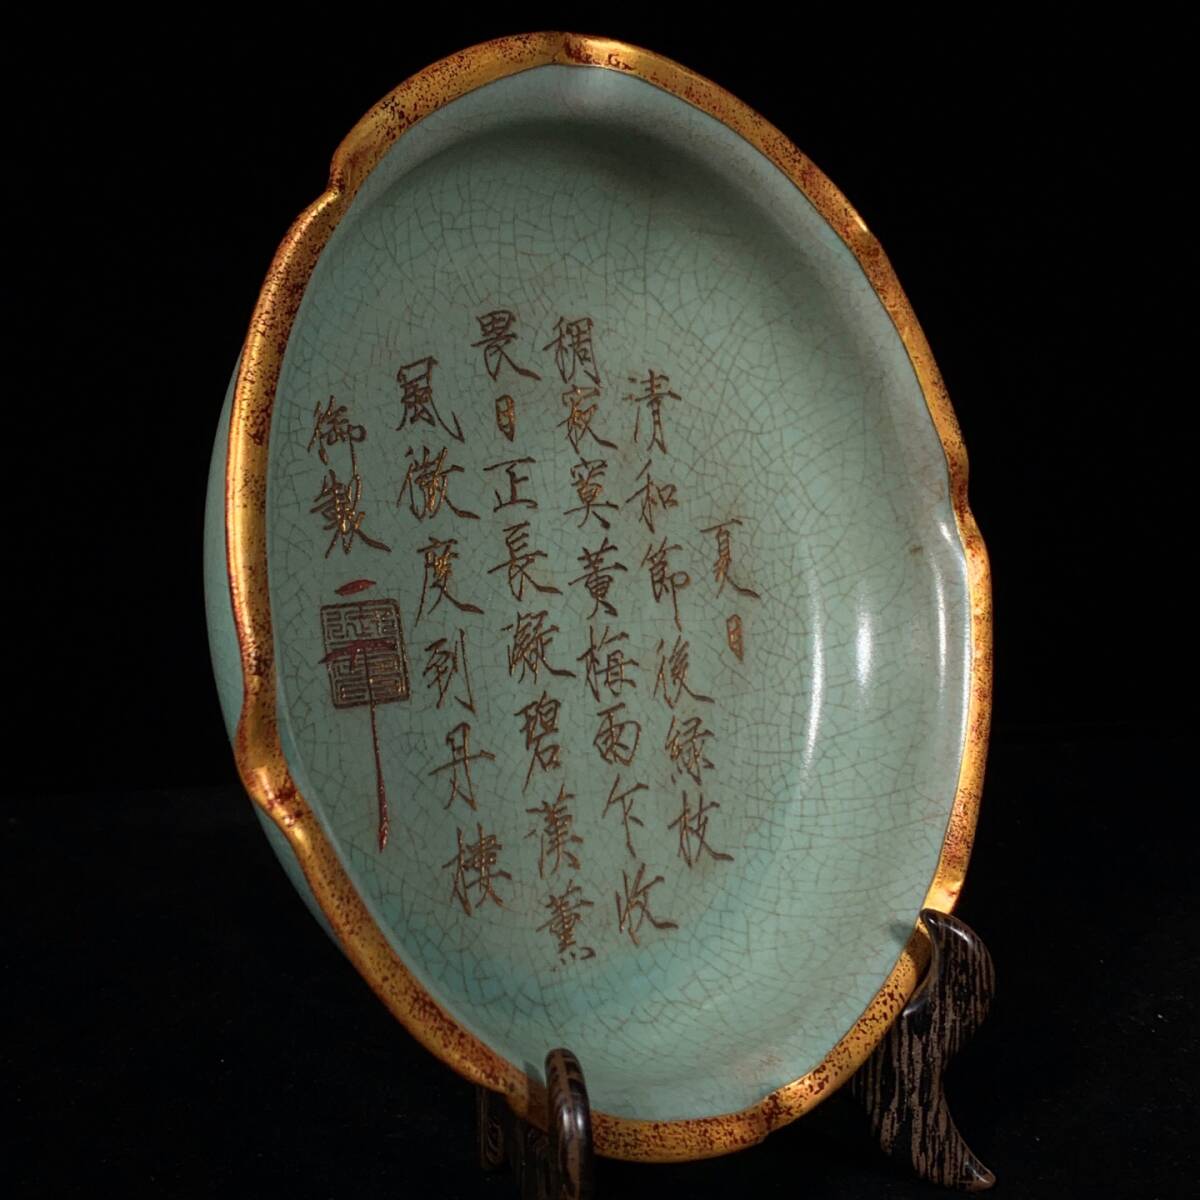 夏日
清和節後綠枝
稠寂寞黃梅雨乍收
畏日正長凝碧漢薰
風微度到丹樓
御製